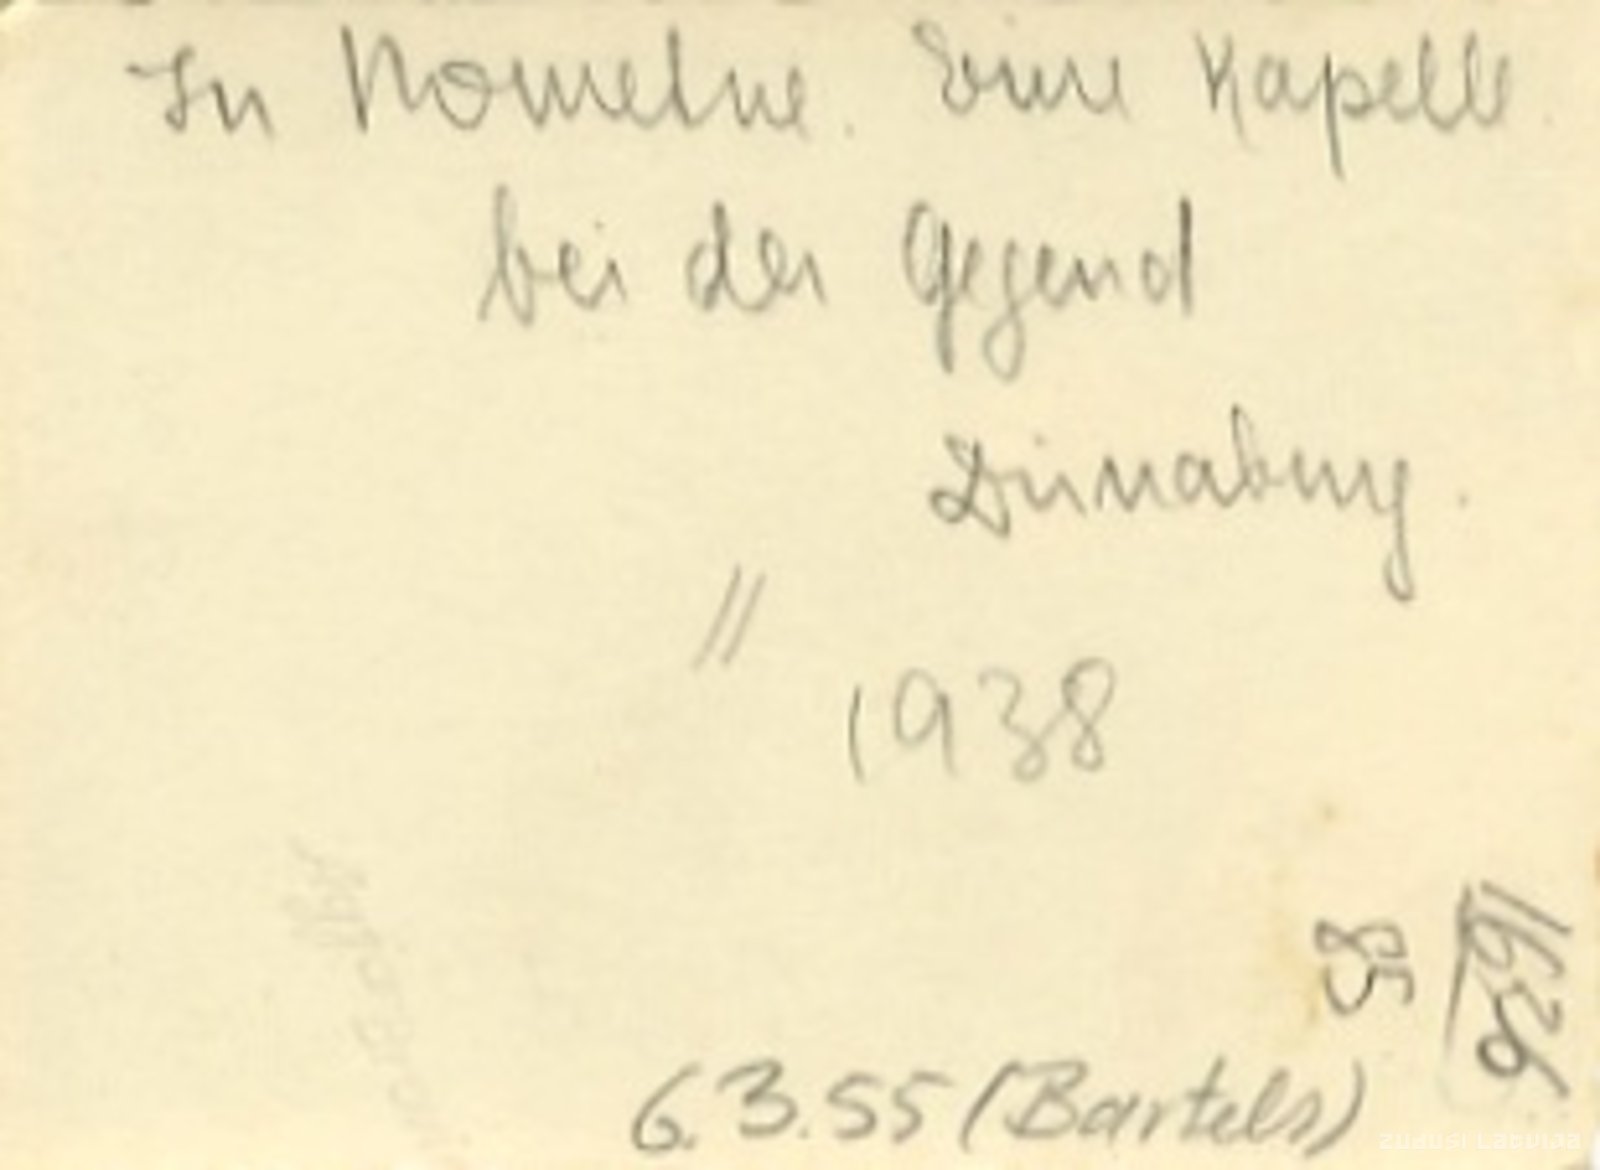 In Nometne. Eine Kapelle.
bei der Gegend
Dünaburg.
//
1938
85
6.3.55 (Bartels)
Zudusi Latvija